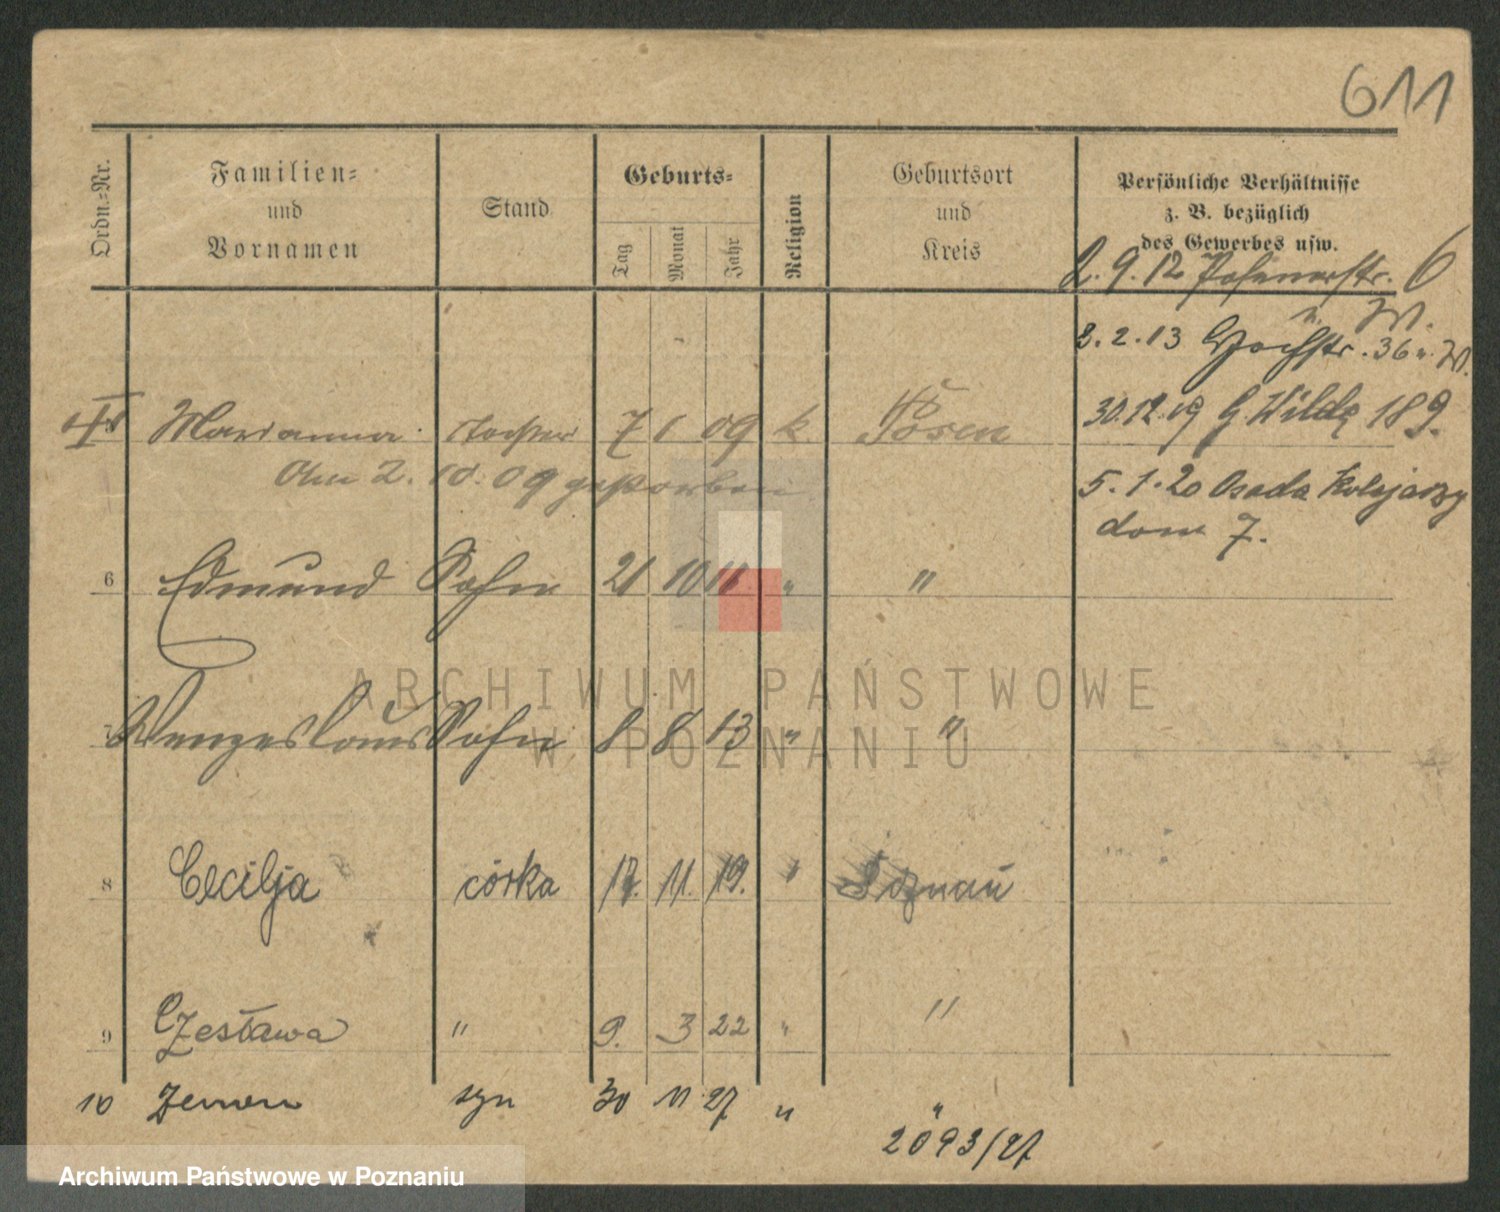 611
Ordn.-Nr.
Familien-
und
Vornamen
Stand
Geburts-
Tag
Monat
Jahr
Religion
Geburtsort
und
Kreis
Persönliche Verhältnisse
z. B. bezüglich
des Gewerbes usw.
2.9.12 Posenerstr. 6
u. W.
2.2.13 Hochstr. 36 u. W.
30.12.19 G. Wilda 189.
5.1.20 Osada Kolejarzy
dom 7.
Marianna Tochter 7 1 09 k. Posen
Am 2. 10. 09 gestorben
6 Edmund Sohn 21 10 11 " "
7 Wenzeslaus Sohn 8 8 13 " "
8 Cecilja córka 17. 11. 19. " Poznań
9 Czesława " 9. 3 22 " "
10 Zenon syn 30 11 27 " "
2093/27
ARCHIWUM PAŃSTWOWE
W POZNANIU
Archiwum Państwowe w Poznaniu